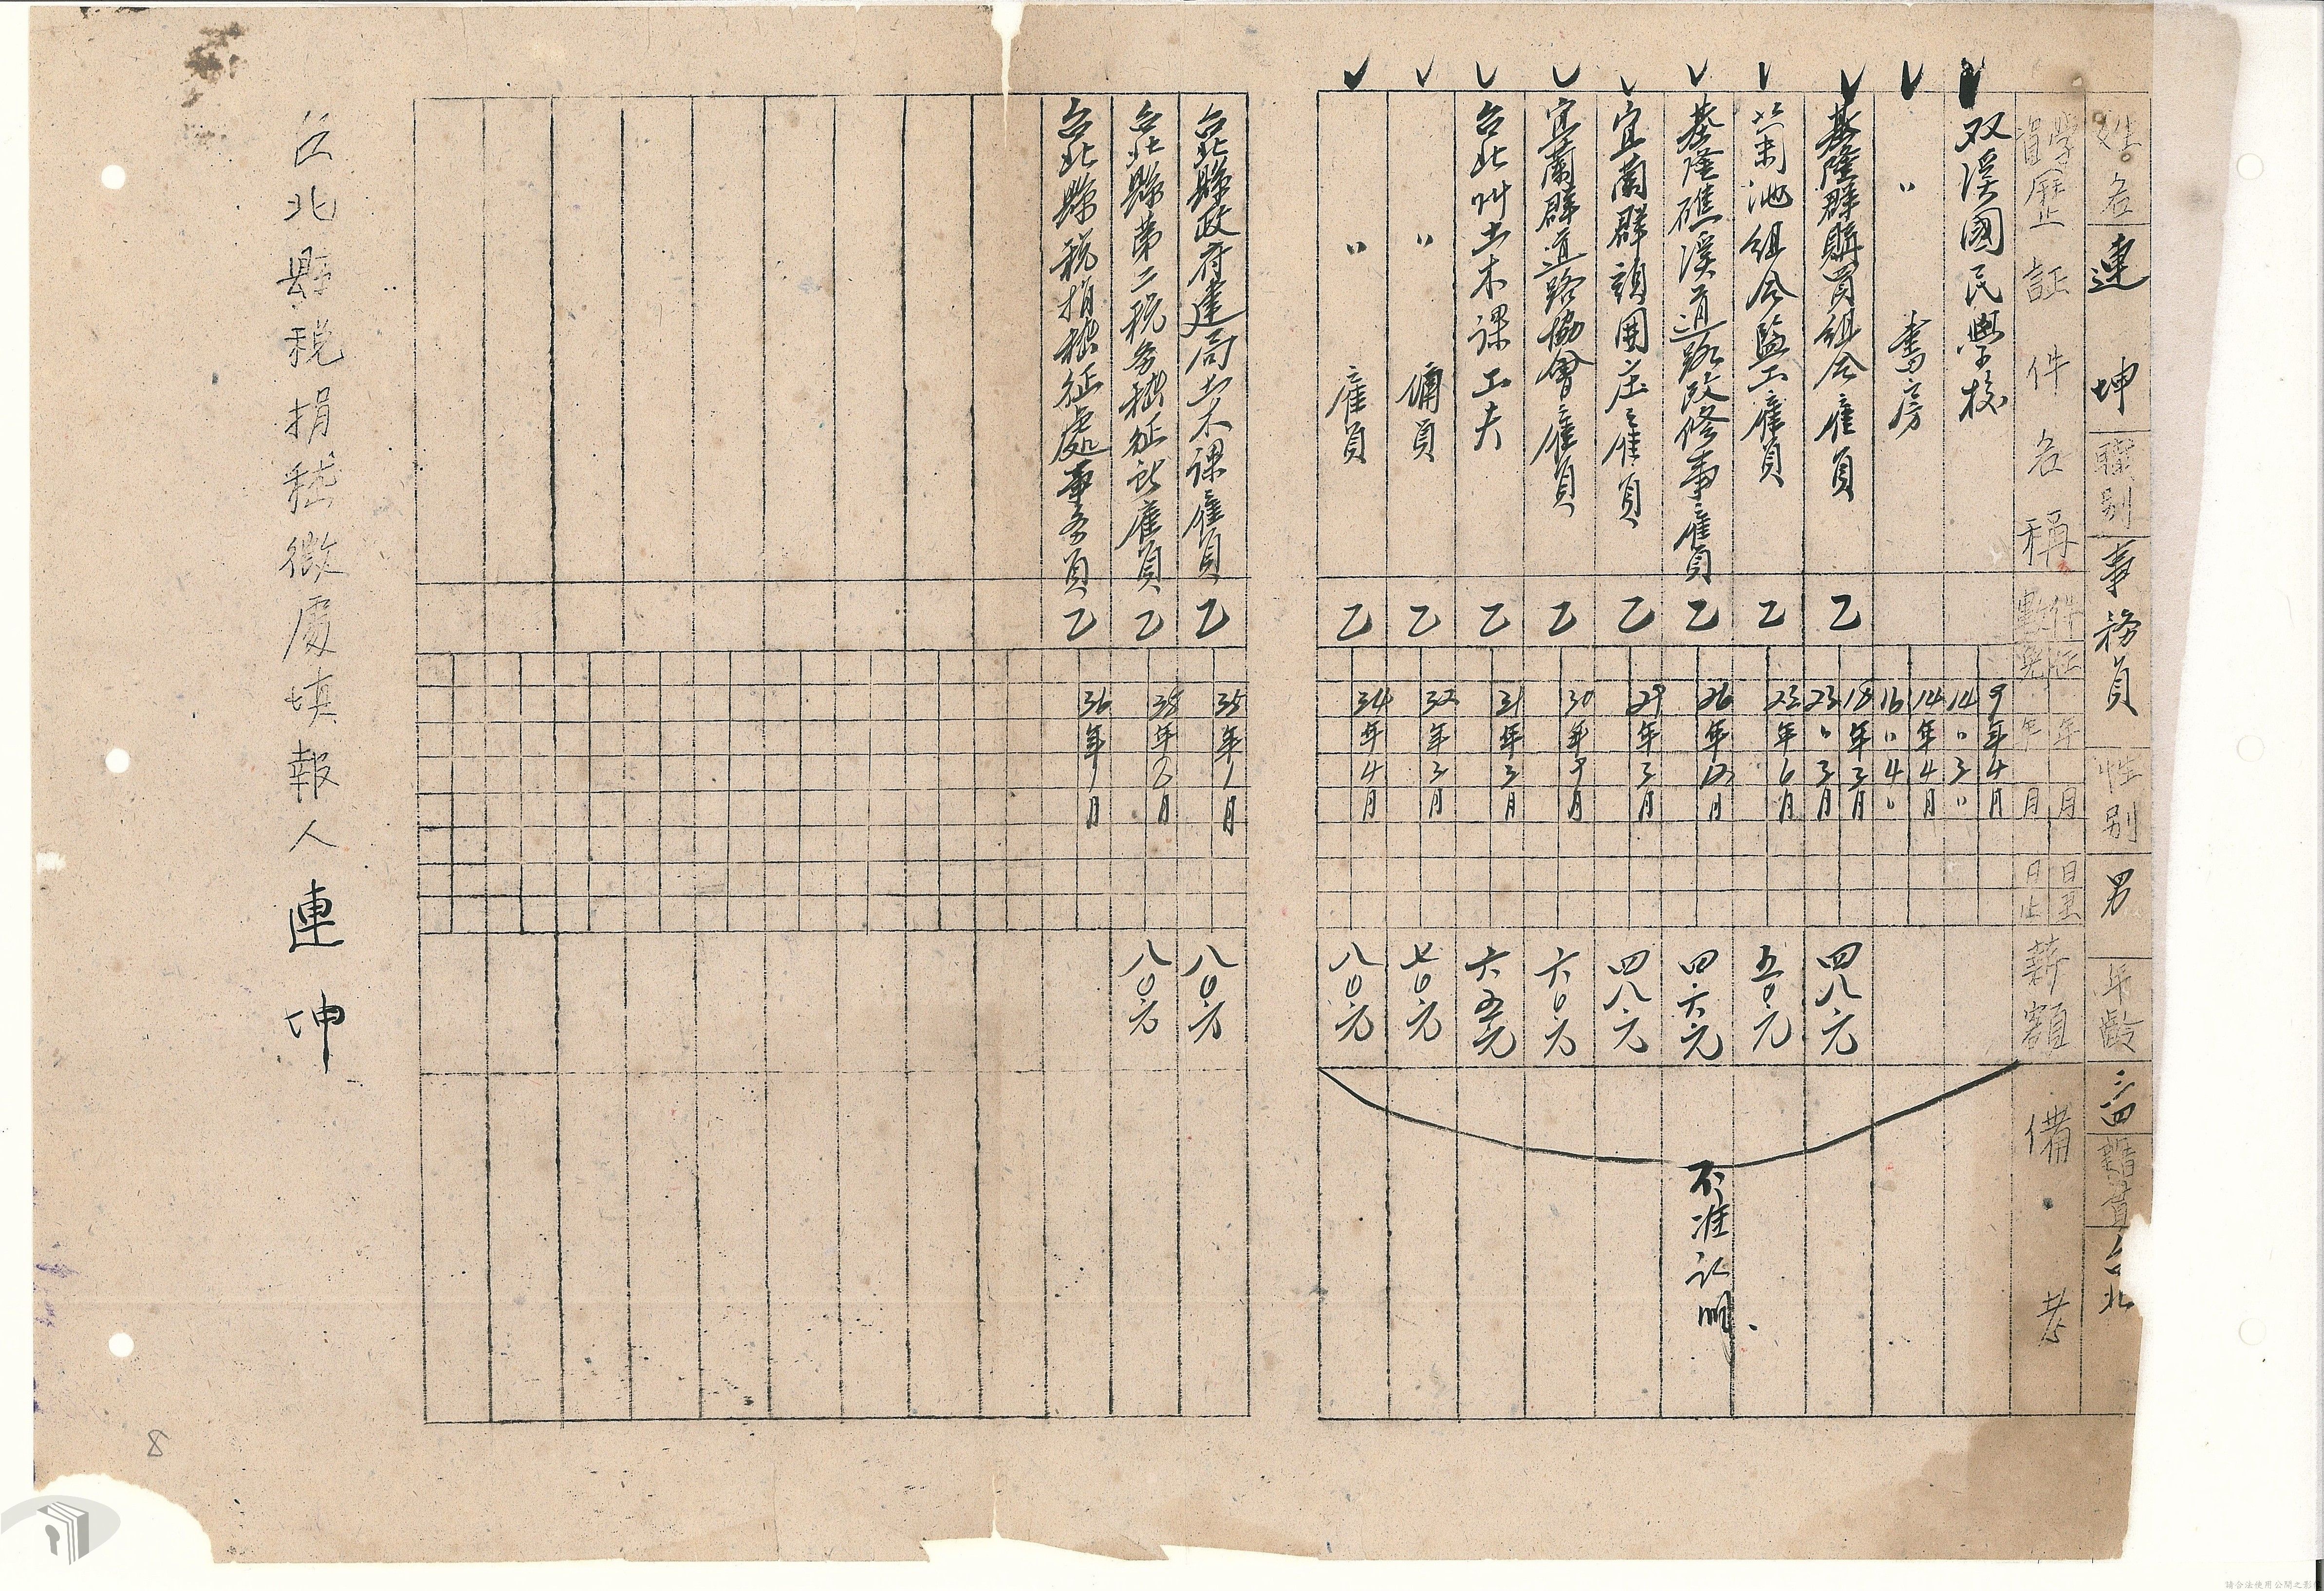 姓名 連坤 職別 事務員 性別 男 年齡 三四 籍貫 台北
學歷証件名稱 件 年月日 年月日止 薪額 備考
双溪國民學校 9年4月 14〃3〃
〃 書房 14年4月 16〃4〃
基隆群購買組合雇員 乙 18年3月 23〃3月 四八元
組合監工雇員 乙 23年6月 五〇元
基隆礁溪道路改修事雇員 乙 26年12月 四六元
宜蘭群頭囲庄雇員 乙 29年3月 四八元
宜蘭群道路協會雇員 乙 30年9月 六〇元
台北州土木課工夫 乙 31年3月 六五元
〃 傭員 乙 32年3月 七〇元
〃 雇員 乙 34年4月 八〇元
不准認明
台北縣政府建局土木課雇員 乙 35年1月 八〇元
台北縣第二稅務稽征所雇員 乙 35年8月 八〇元
台北縣稅捐稽征處事务員 乙 36年1月
台北縣稅捐稽徵處填報人 連坤
8